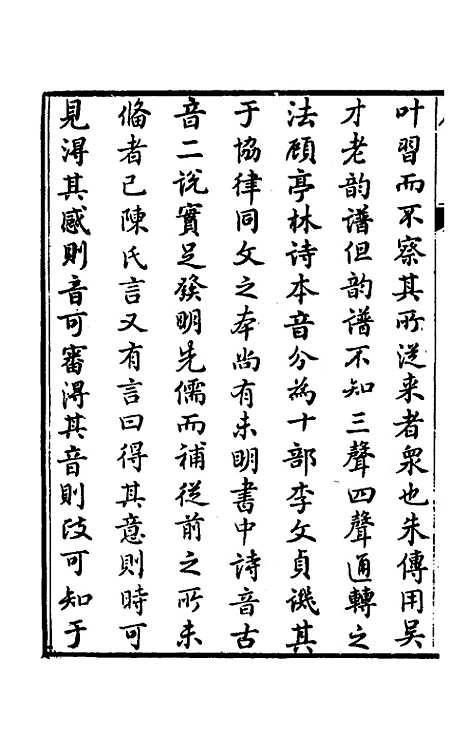 叶習而不察其所從来者衆也朱傳用吴
才老韵谱但韵谱不知三聲四聲通轉之
法顧亭林诗本音分為十部李文貞譏其
于協律同文之本尚有未明書中詩音古
音二说實足發明先儒而補從前之所未
俻者已陳氏言又有言曰得其意則時可
見淂其感則音可審淂其音則歧可知于